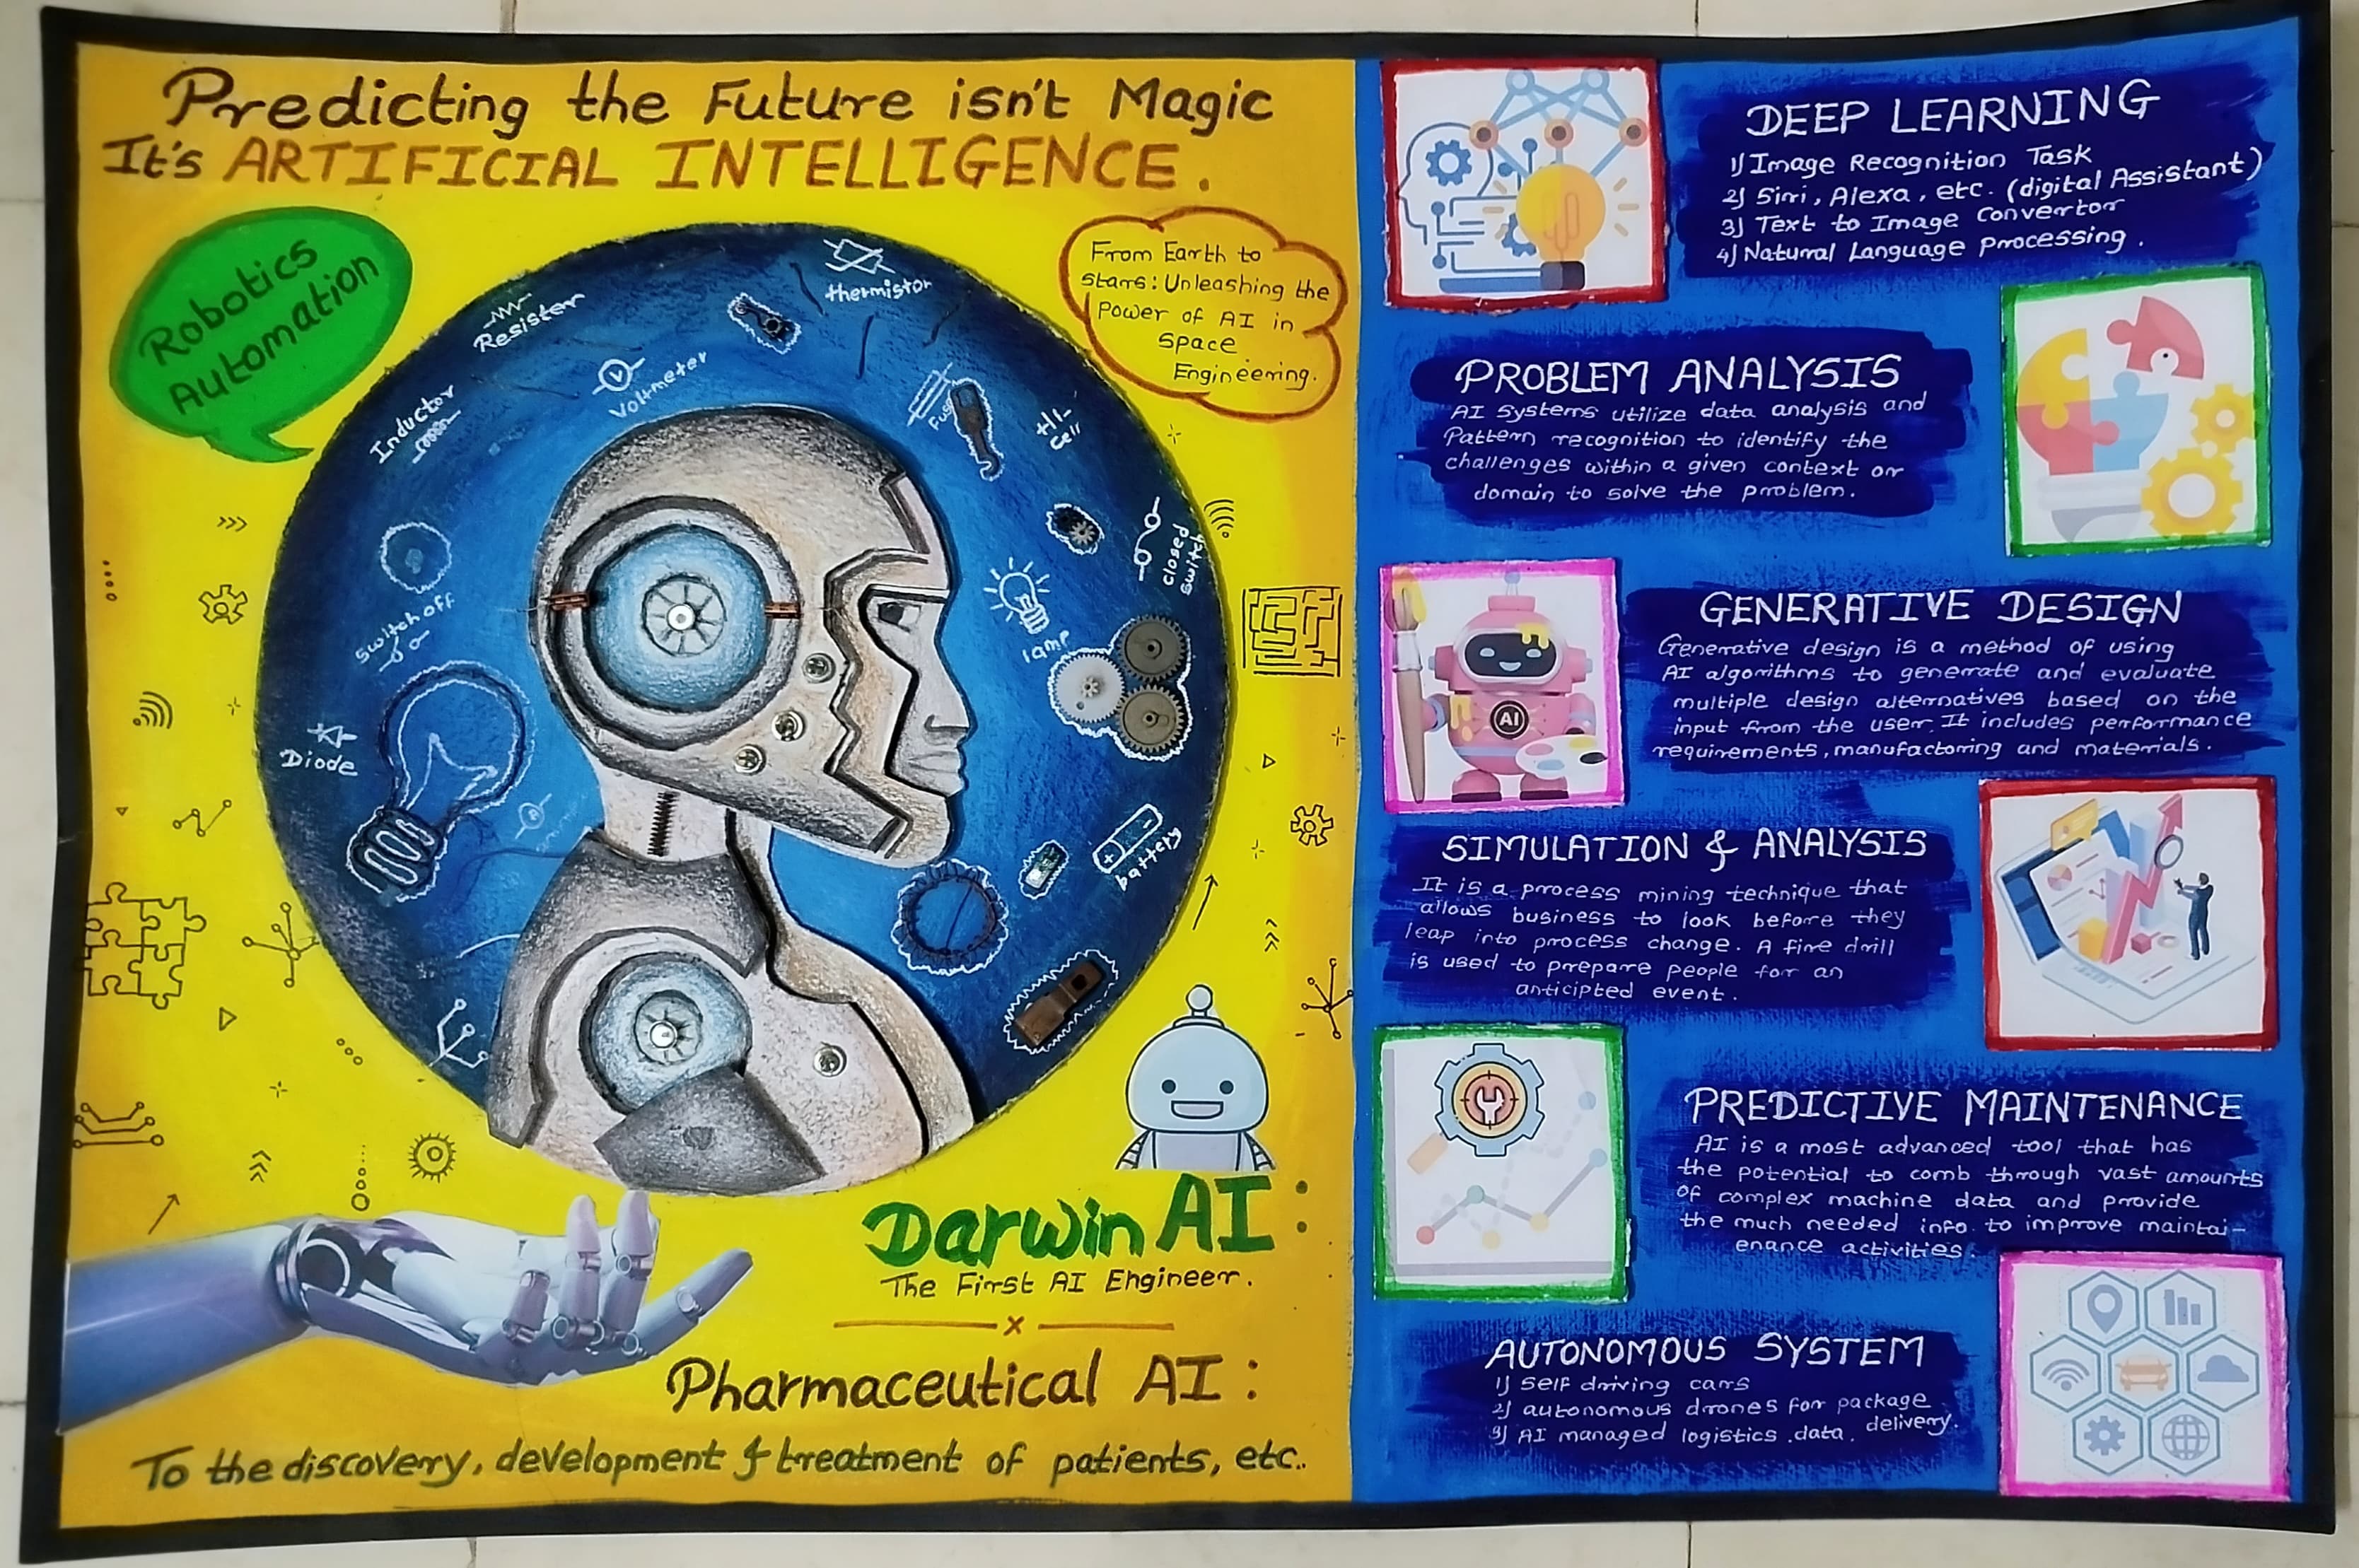 Predicting the Future isn't Magic
It's ARTIFICIAL INTELLIGENCE.
Robotics
Automation
From Earth to
stars: Unleashing the
Power of AI in
Space
Engineering.
thermistor
Resister
Voltmeter
V
Inductor
Fuse
Cell
closed
switch
switch off
lamp
Diode
battery
Darwin AI:
The First AI Engineer.
x
Pharmaceutical AI:
To the discovery, development & treatment of patients, etc..
DEEP LEARNING
1) Image Recognition Task
2) Siri, Alexa, etc. (digital Assistant)
3) Text to Image Convertor
4) Natural Language processing.
PROBLEM ANALYSIS
AI Systems utilize data analysis and
Pattern recognition to identify the
challenges within a given context or
domain to solve the problem.
GENERATIVE DESIGN
Generative design is a method of using
AI algorithms to generate and evaluate
multiple design alternatives based on the
input from the user. It includes performance
requirements, manufactoring and materials.
AI
SIMULATION & ANALYSIS
It is a process mining technique that
allows business to look before they
leap into process change. A fire drill
is used to prepare people for an
anticipted event.
PREDICTIVE MAINTENANCE
AI is a most advanced tool that has
the potential to comb through vast amounts
of complex machine data and provide
the much needed info to improve maintai-
enance activities.
AUTONOMOUS SYSTEM
1) Self driving cars
2) autonomous drones for package
delivery.
3) AI managed logistics data.